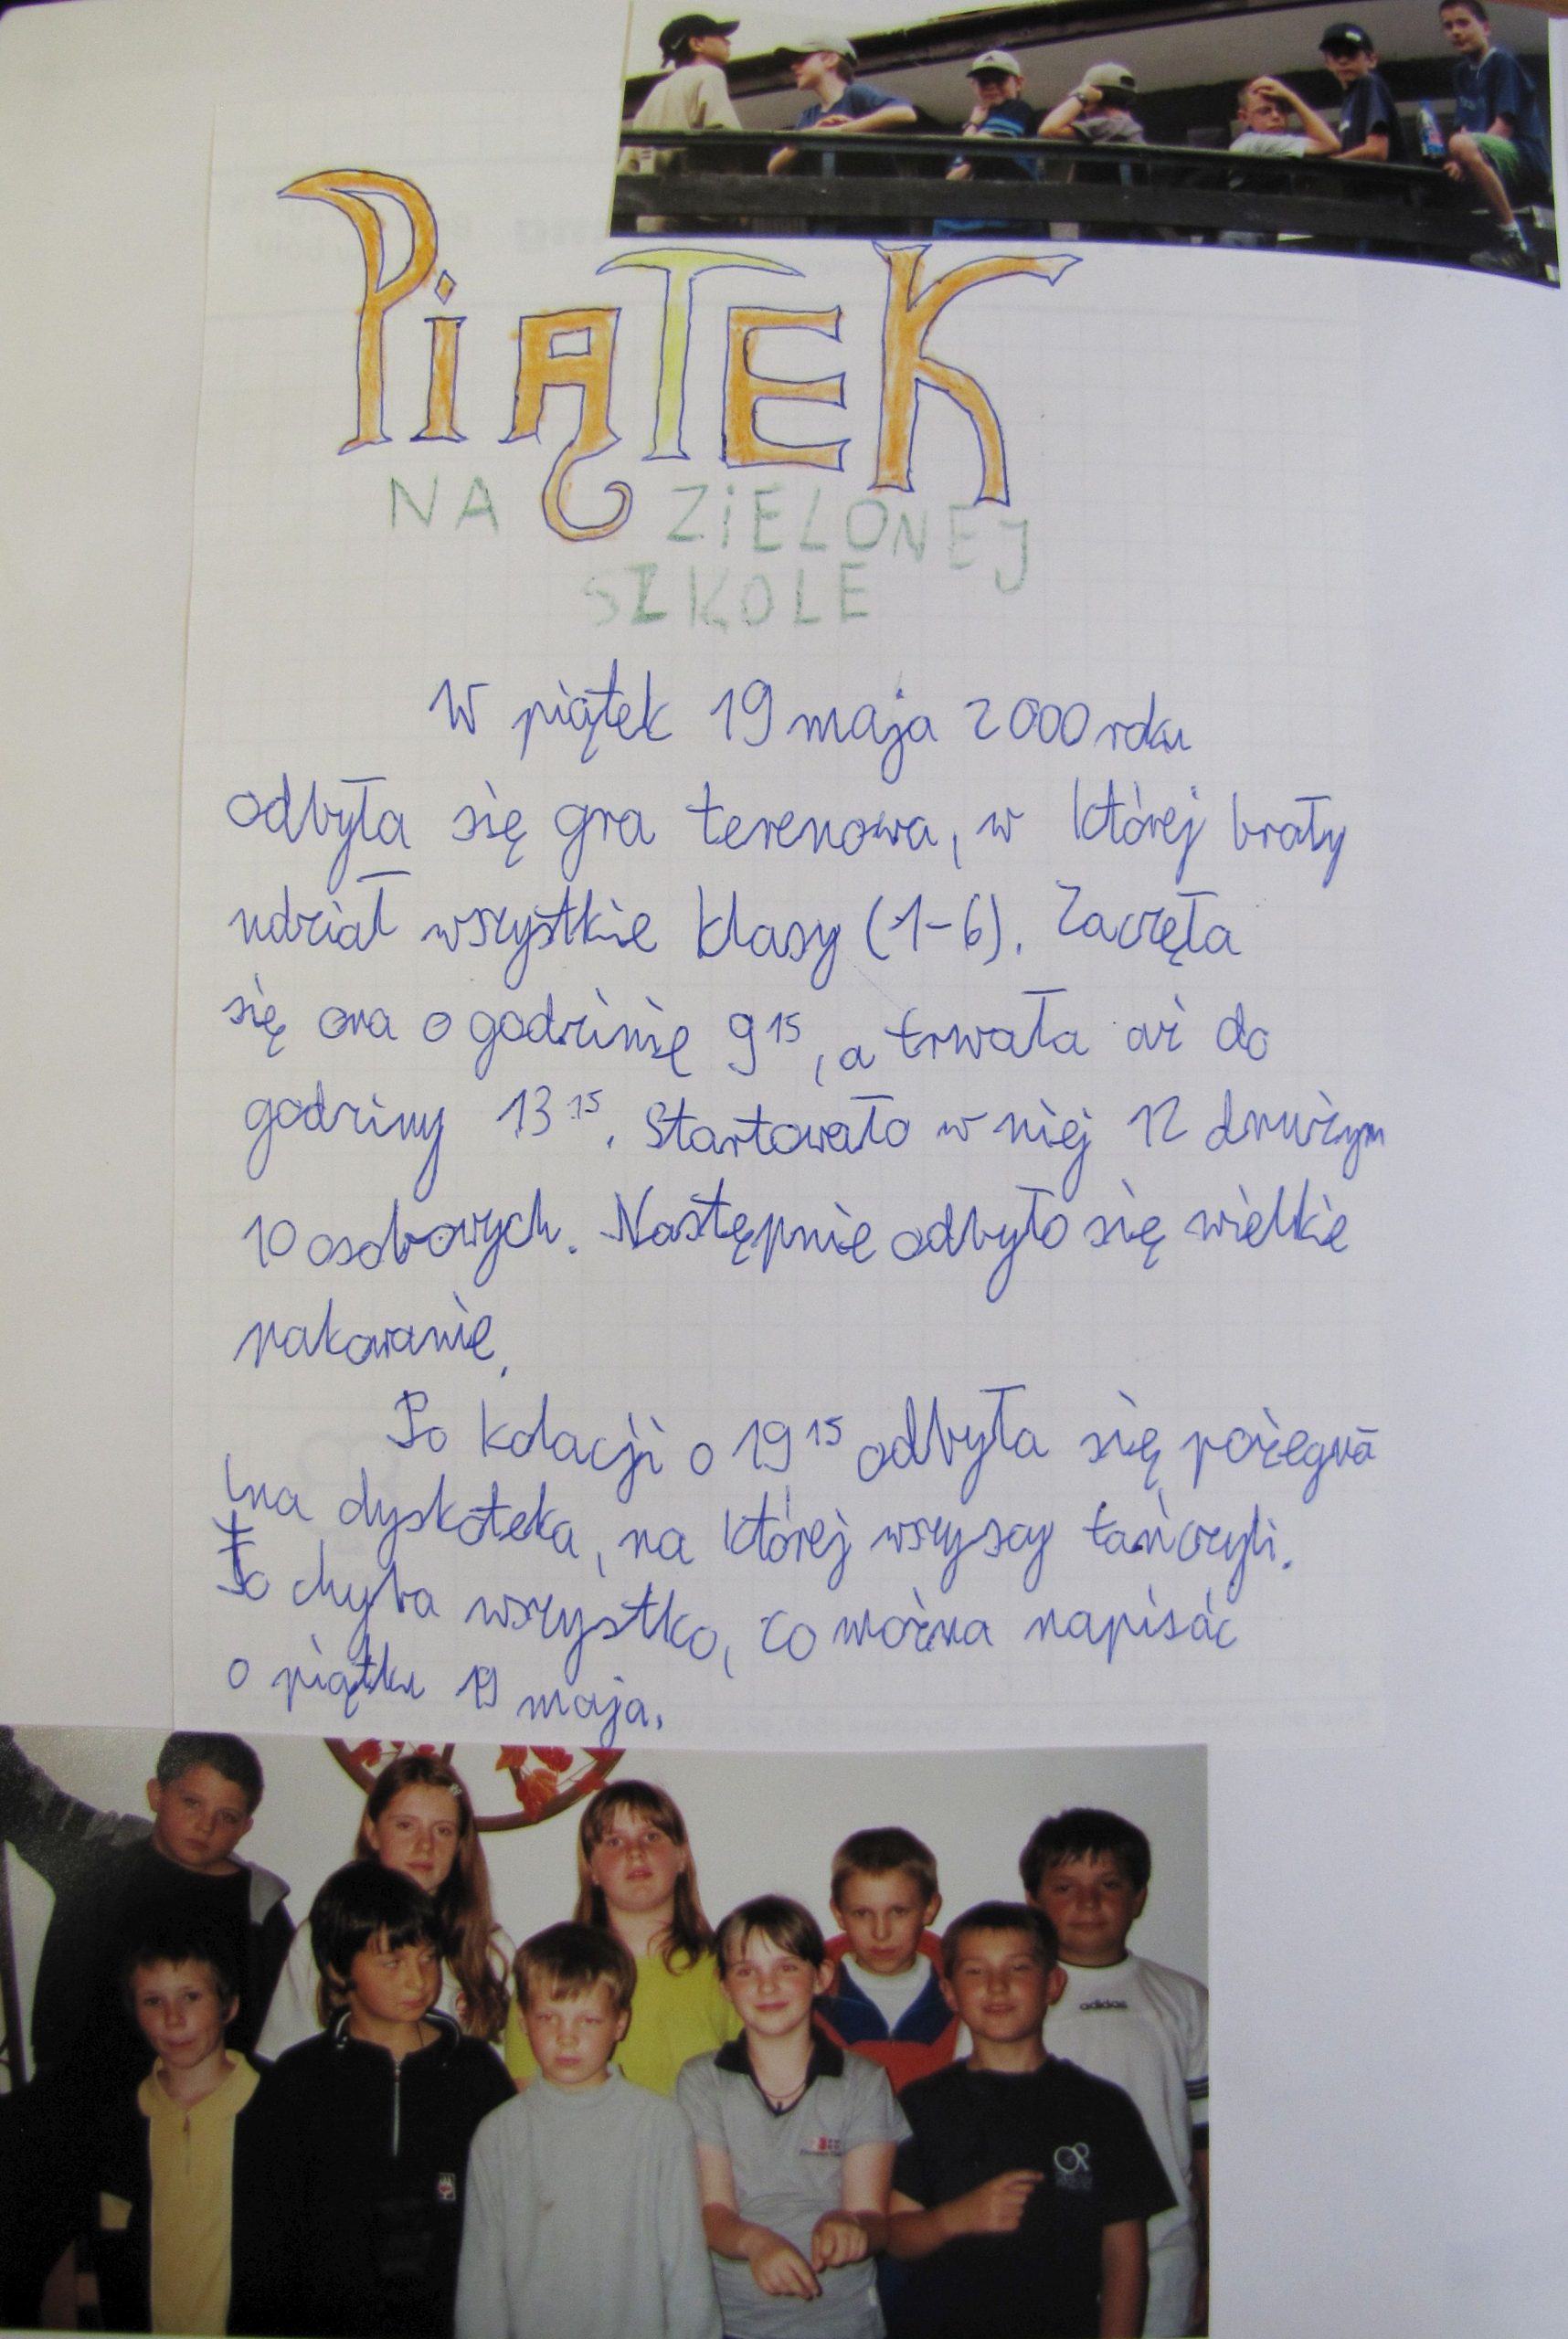 PiĄTEK
NA ZiELONEJ
SZKOLE
W piątek 19 maja 2000 roku
odbyła się gra terenowa, w której brały
udział wszystkie klasy (1-6). Zaczęła
się ona o godzinie 9 15, a trwała aż do
godziny 13 15. Startowało w niej 12 drużyn
10 osobowych. Następnie odbyło się wielkie
pakowanie.
Po kolacji o 19 15 odbyła się pożegna
lna dyskoteka, na której wszyscy tańczyli.
To chyba wszystko, co można napisać
o piątku 19 maja.
adidas
OP